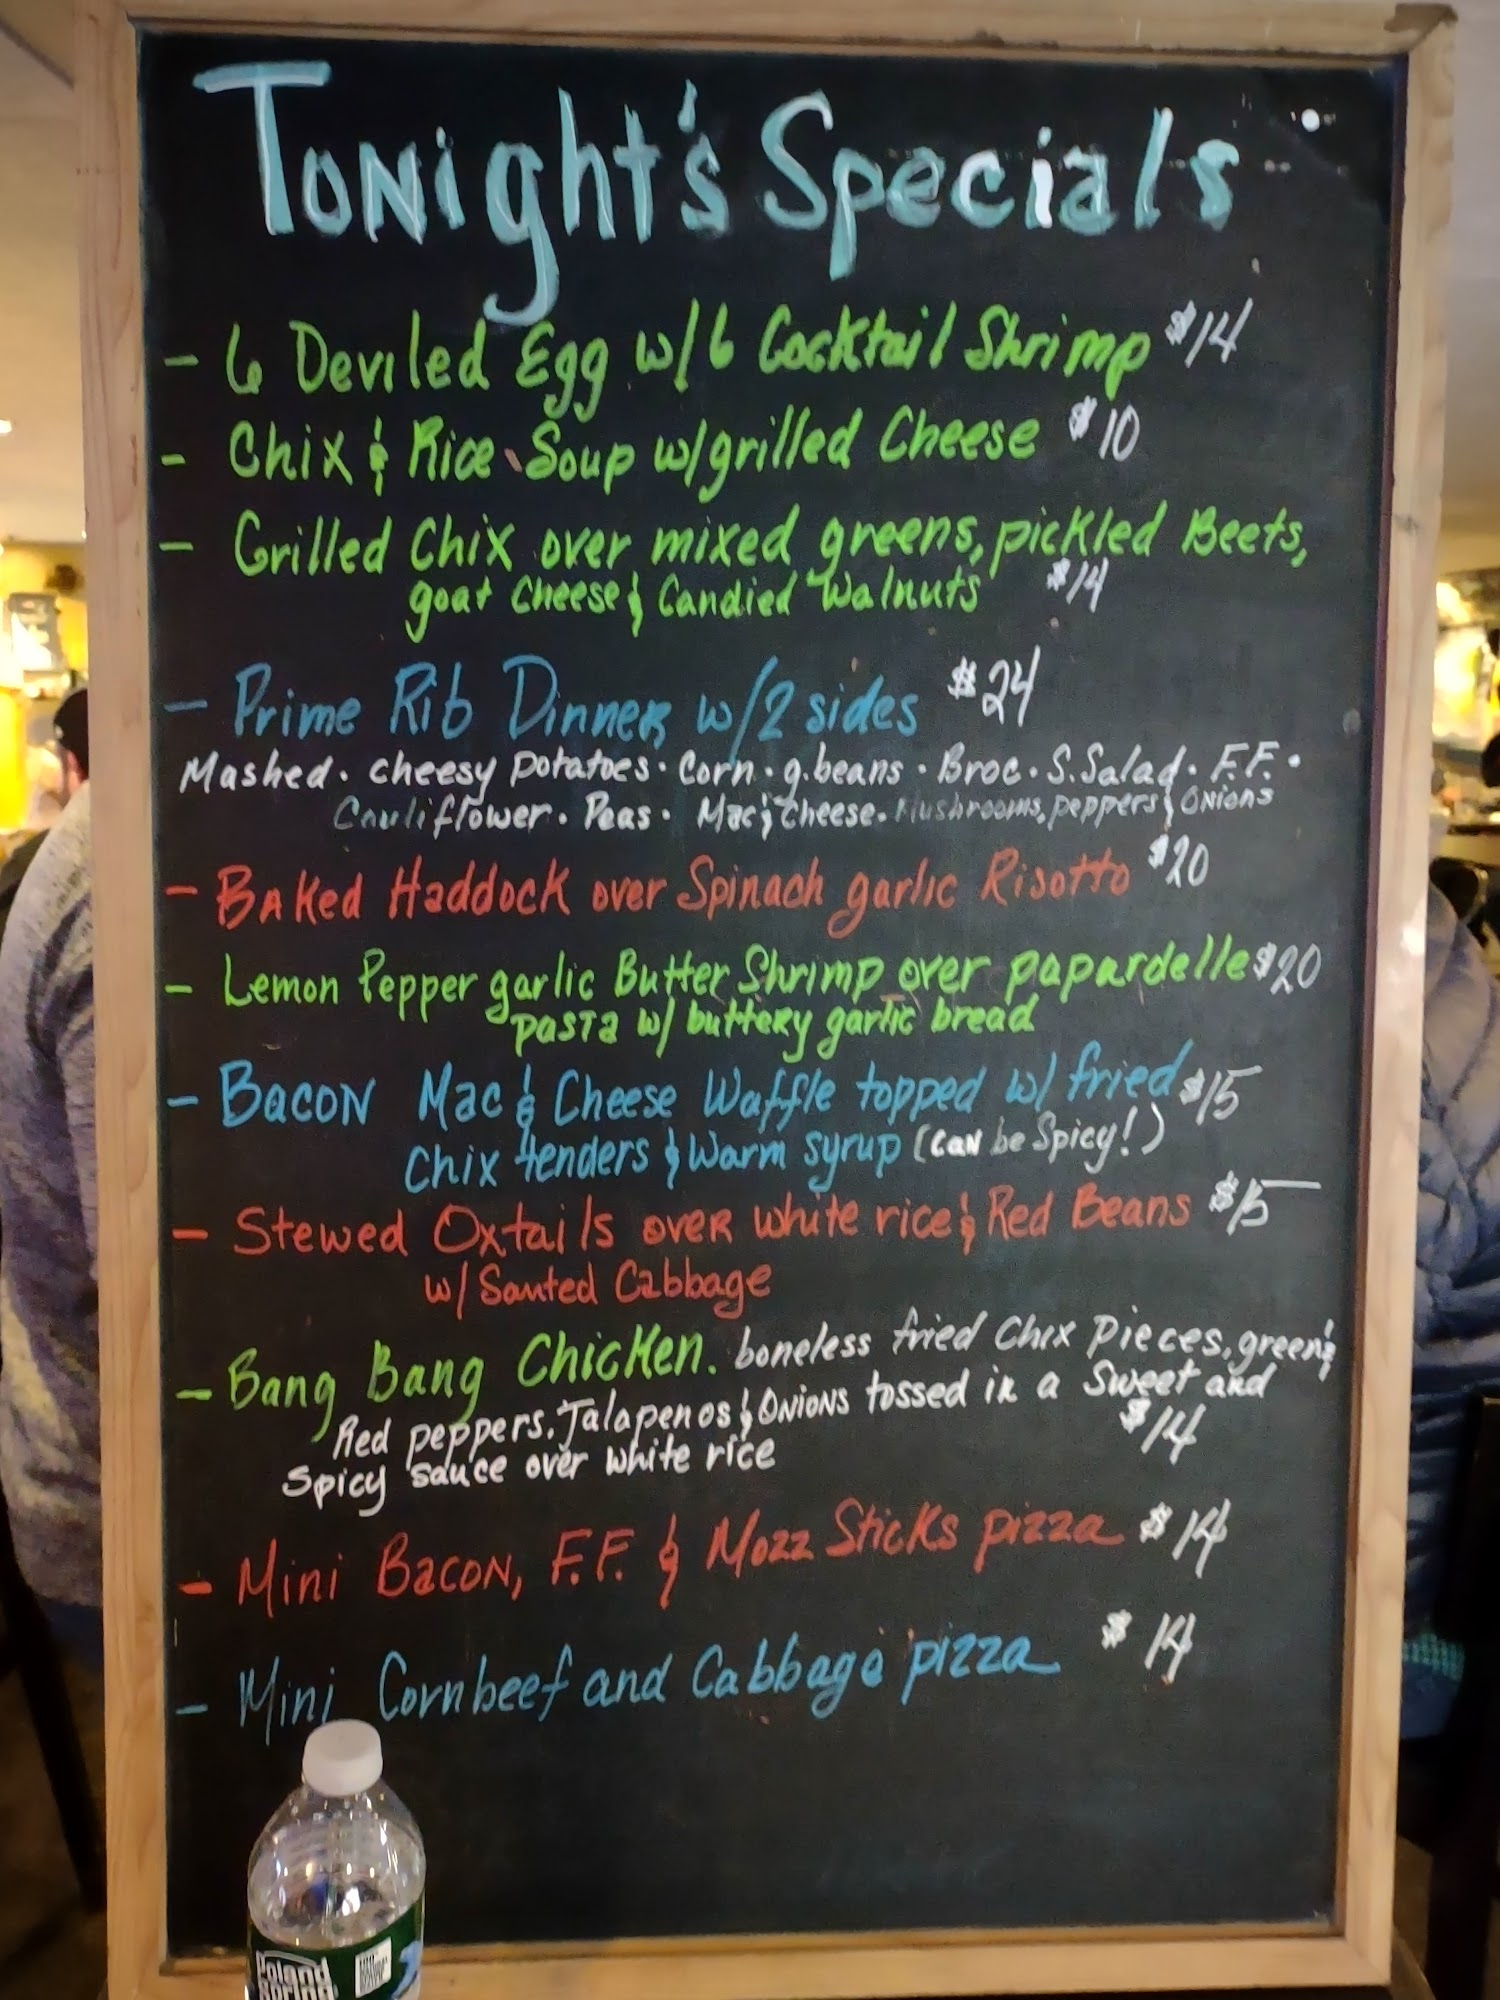 Tonight's Specials
- 6 Deviled Egg w/6 Cocktail Shrimp $14
- Chix & Rice Soup w/grilled Cheese $10
- Grilled Chix over mixed greens, pickled Beets,
goat Cheese & Candied Walnuts $14
- Prime Rib Dinner w/2 sides $24
Mashed · cheesy potatoes · Corn · g.beans · Broc · S.Salad · F.F. ·
Cauliflower · Peas · Mac & Cheese · Mushrooms, peppers & Onions
- Baked Haddock over Spinach garlic Risotto $20
- Lemon Pepper garlic Butter Shrimp over papardelle $20
pasta w/ buttery garlic bread
- Bacon Mac & Cheese Waffle topped w/ fried $15
Chix tenders & Warm syrup (can be Spicy!)
- Stewed Oxtails over white rice & Red Beans $15
w/ Sauted Cabbage
- Bang Bang Chicken. boneless fried Chix Pieces, green &
Red peppers, Jalapenos & Onions tossed in a Sweet and
Spicy sauce over white rice $14
- Mini Bacon, F.F. & Mozz Sticks pizza $14
- Mini Cornbeef and Cabbage pizza $14
Poland
Spring